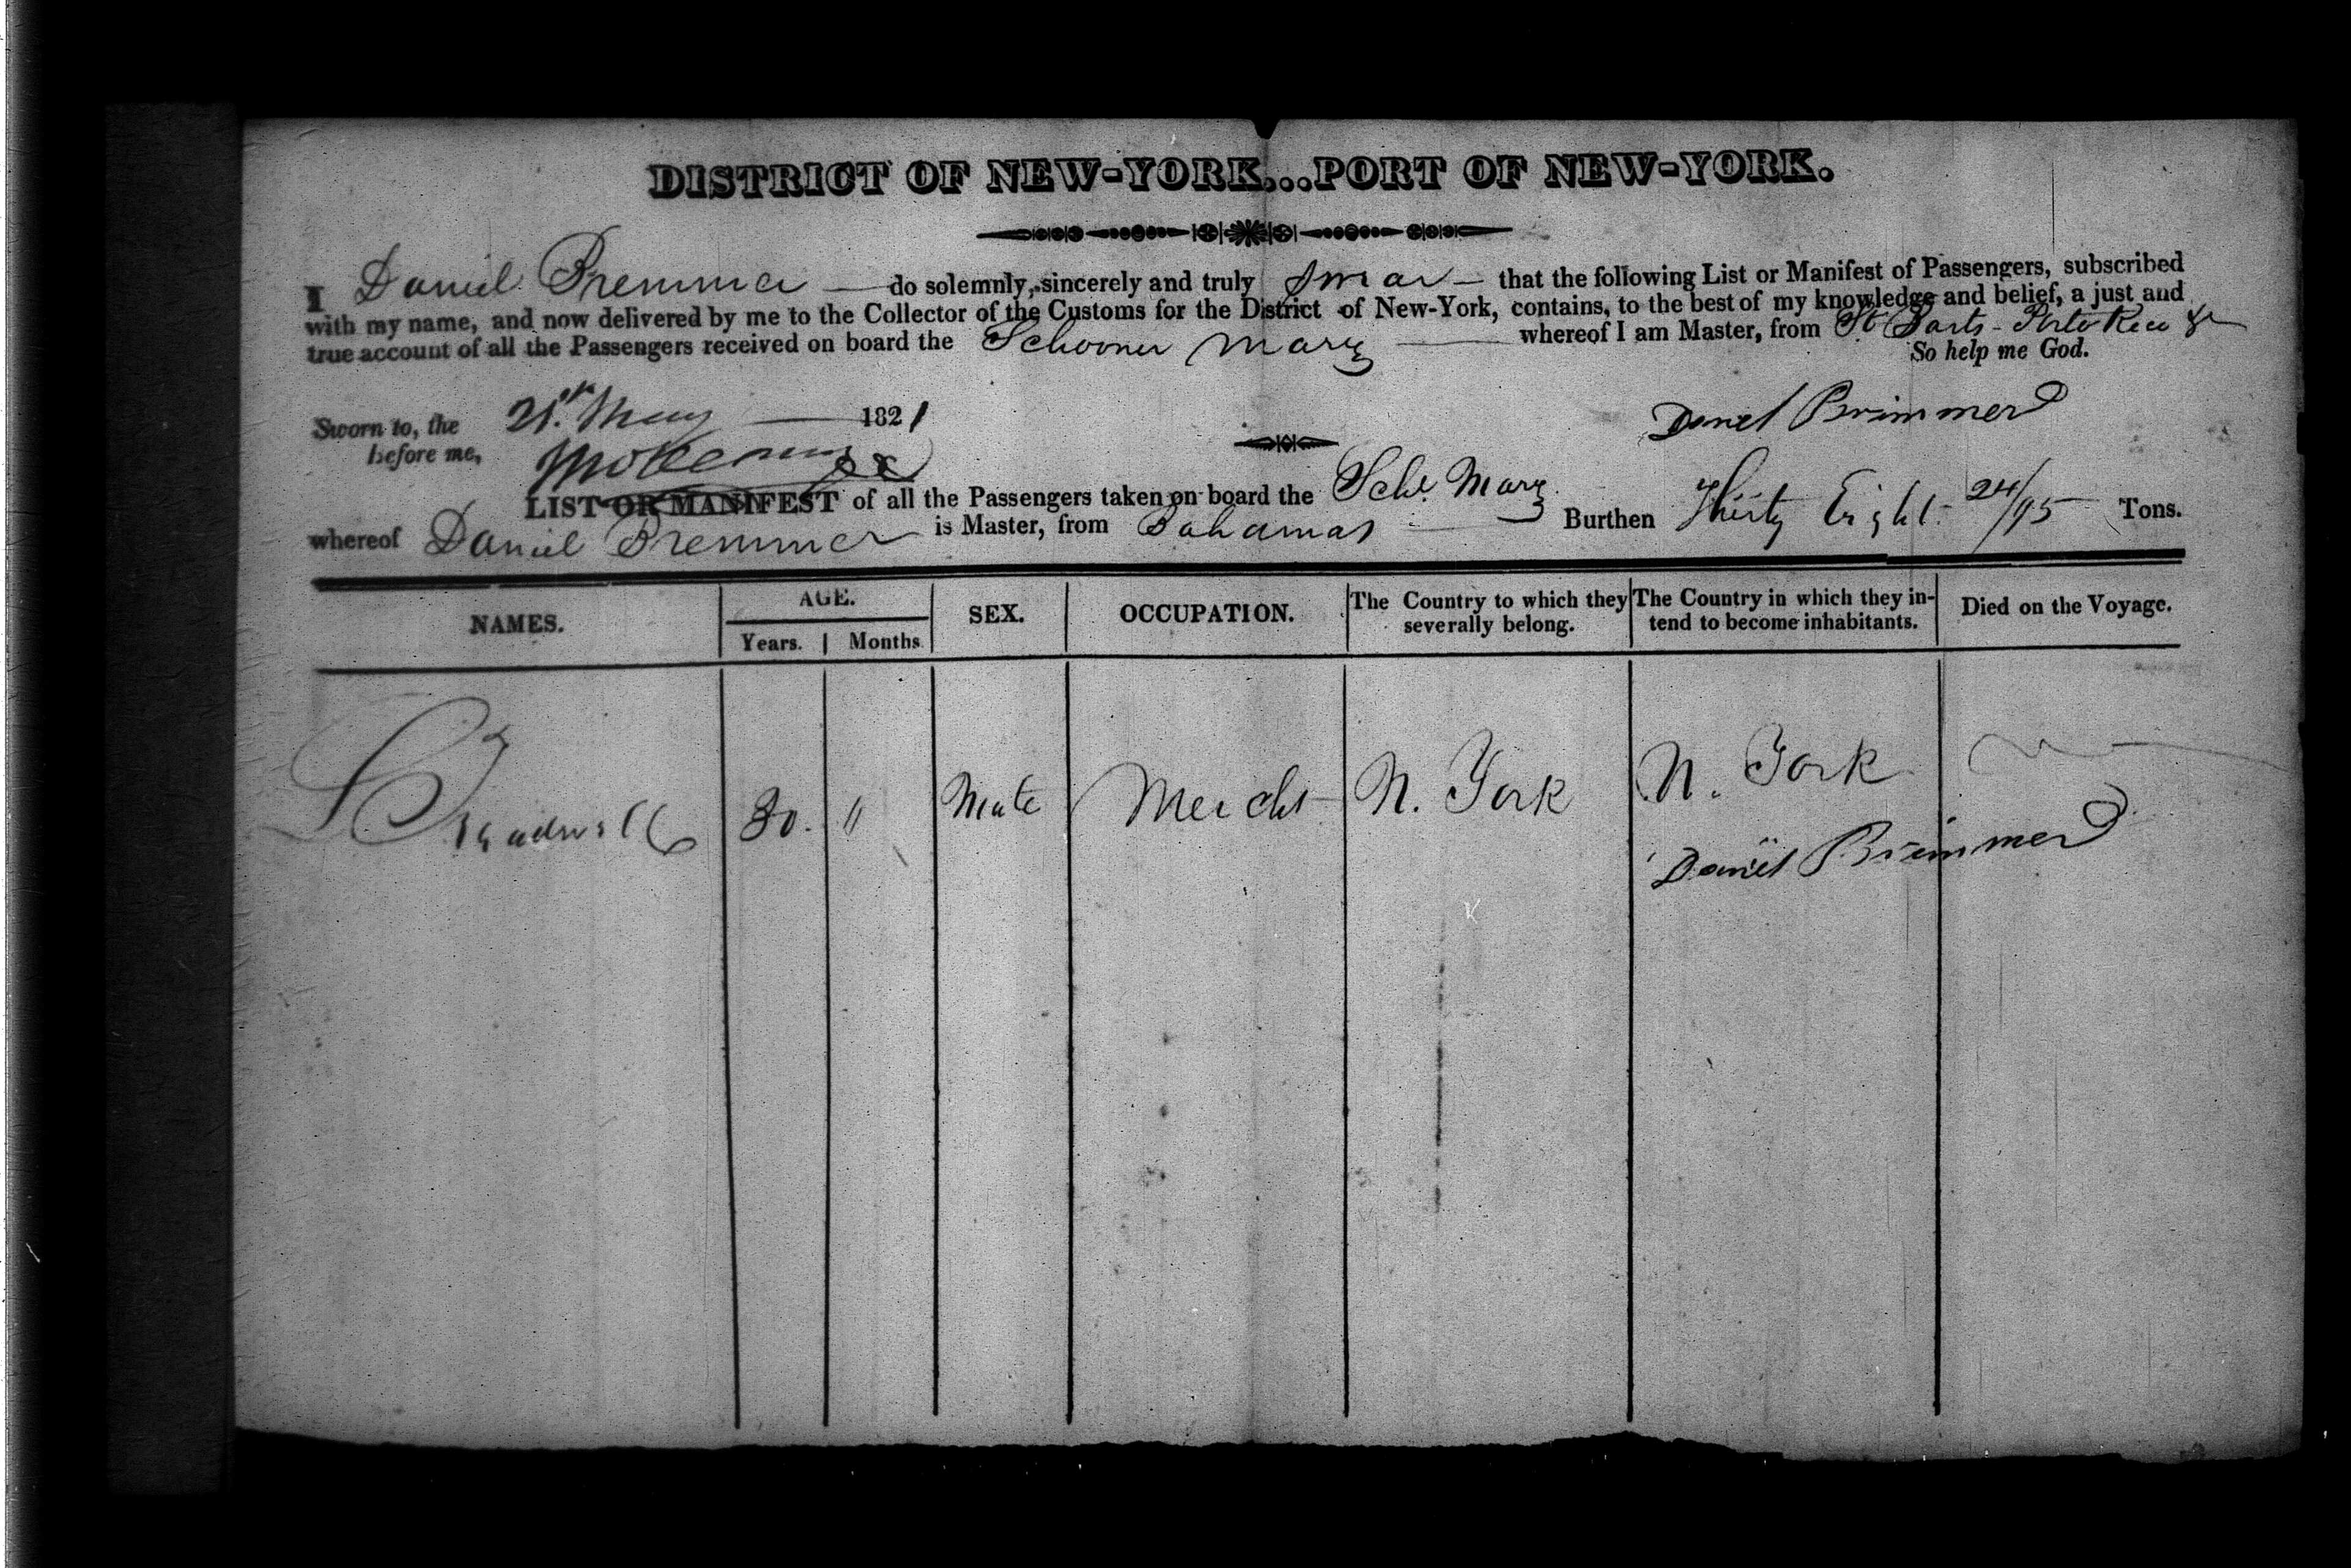 DISTRICT OF NEW-YORK...PORT OF NEW-YORK.
I Daniel Bremmer — do solemnly, sincerely and truly swear — that the following List or Manifest of Passengers, subscribed
with my name, and now delivered by me to the Collector of the Customs for the District of New-York, contains, to the best of my knowledge and belief, a just and
true account of all the Passengers received on board the Schooner Mary — whereof I am Master, from St Barts - Porto Rico &c
So help me God.
Sworn to, the 21st May — 1821
before me,
Daniel Brimmer
LIST OR MANIFEST of all the Passengers taken on board the Schr Mary
whereof Daniel Bremmer is Master, from Bahamas — Burthen Thirty Eight 24/95 Tons.
NAMES. AGE. Years. Months. SEX. OCCUPATION. The Country to which they severally belong. The Country in which they intend to become inhabitants. Died on the Voyage.
30. " Male Mercht N. York N. York
Daniel Brimmer